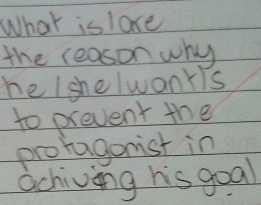 What is/are
the reason why
he/she/want/s
to prevent the
protagonist in
achiving his goal